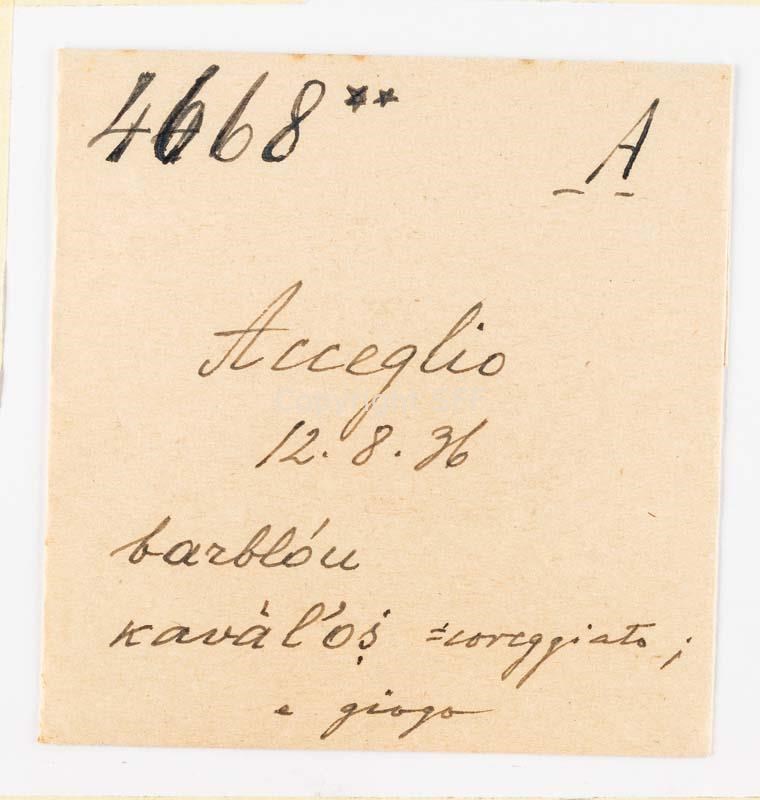 4668**
A
Acceglio
12.8.36
barblóu
kavàl'oṣ́ = coreggiato;
e giogo